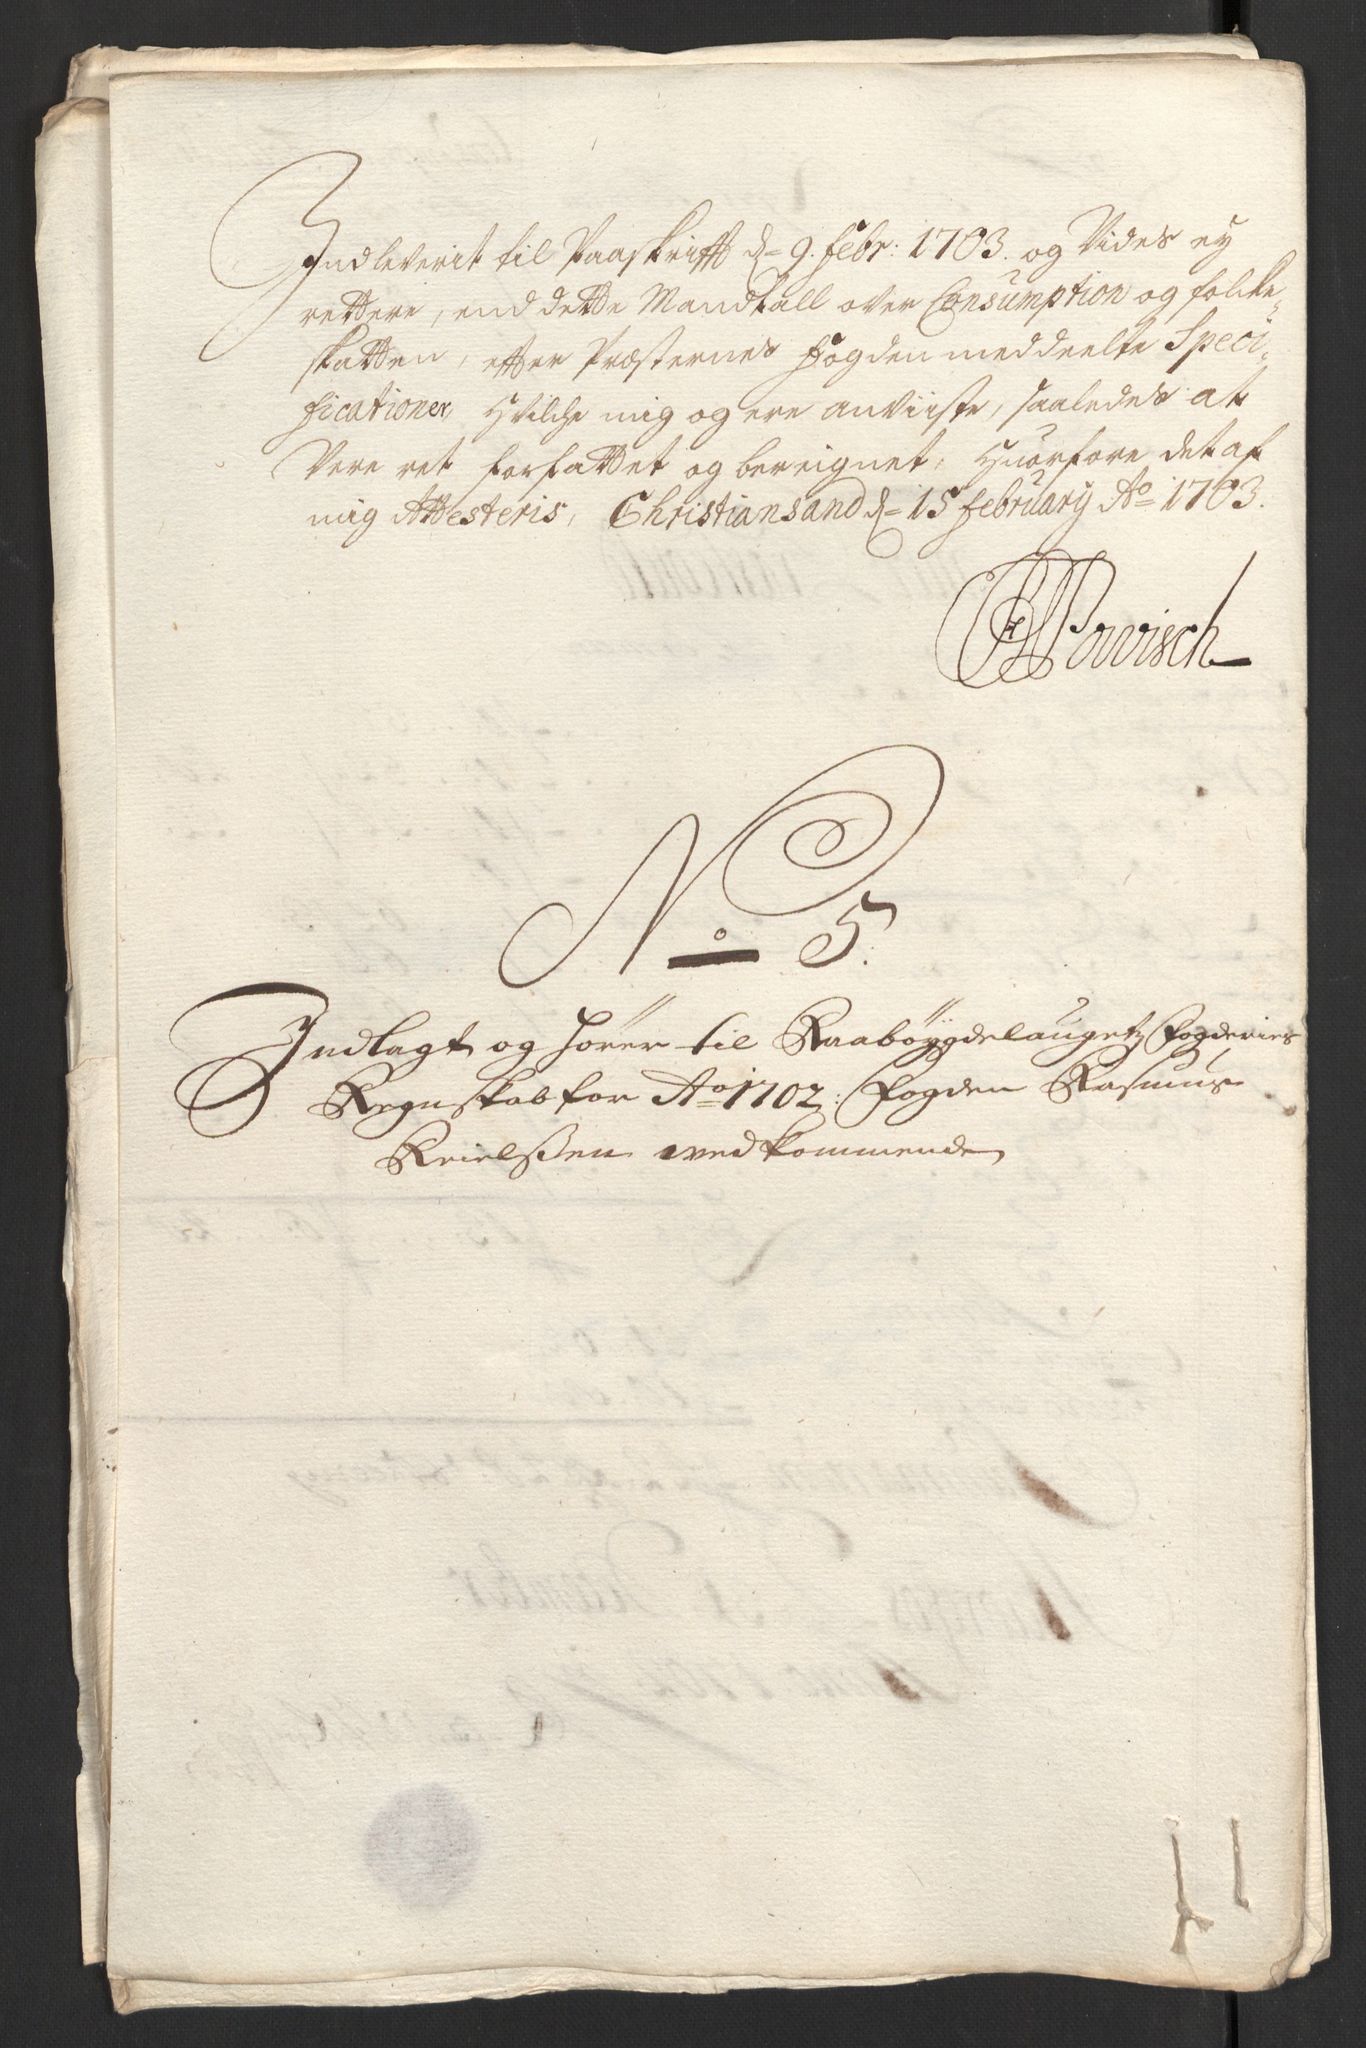 Indleverit til Paaskrifft d= 9. Febr: 1703. og Vides ey
rettere, end dette Mandtall over Consumption og folcke-
skatten, efter Præsternes Fogden meddeelte Speci-
ficationer, Hvilche mig og ere anviiste, saaledes at
Vere ret forfattet og bereignet, Huorfore det af
mig Attesteris, Christiansand d= 15 February Ao 1703.
Powisch
No 5.
Indlagt og hører til Raabøygdelaugetz Fogderies
Regnskab for Ao 1702: Fogden Rasmus
Kielssen vedkommende